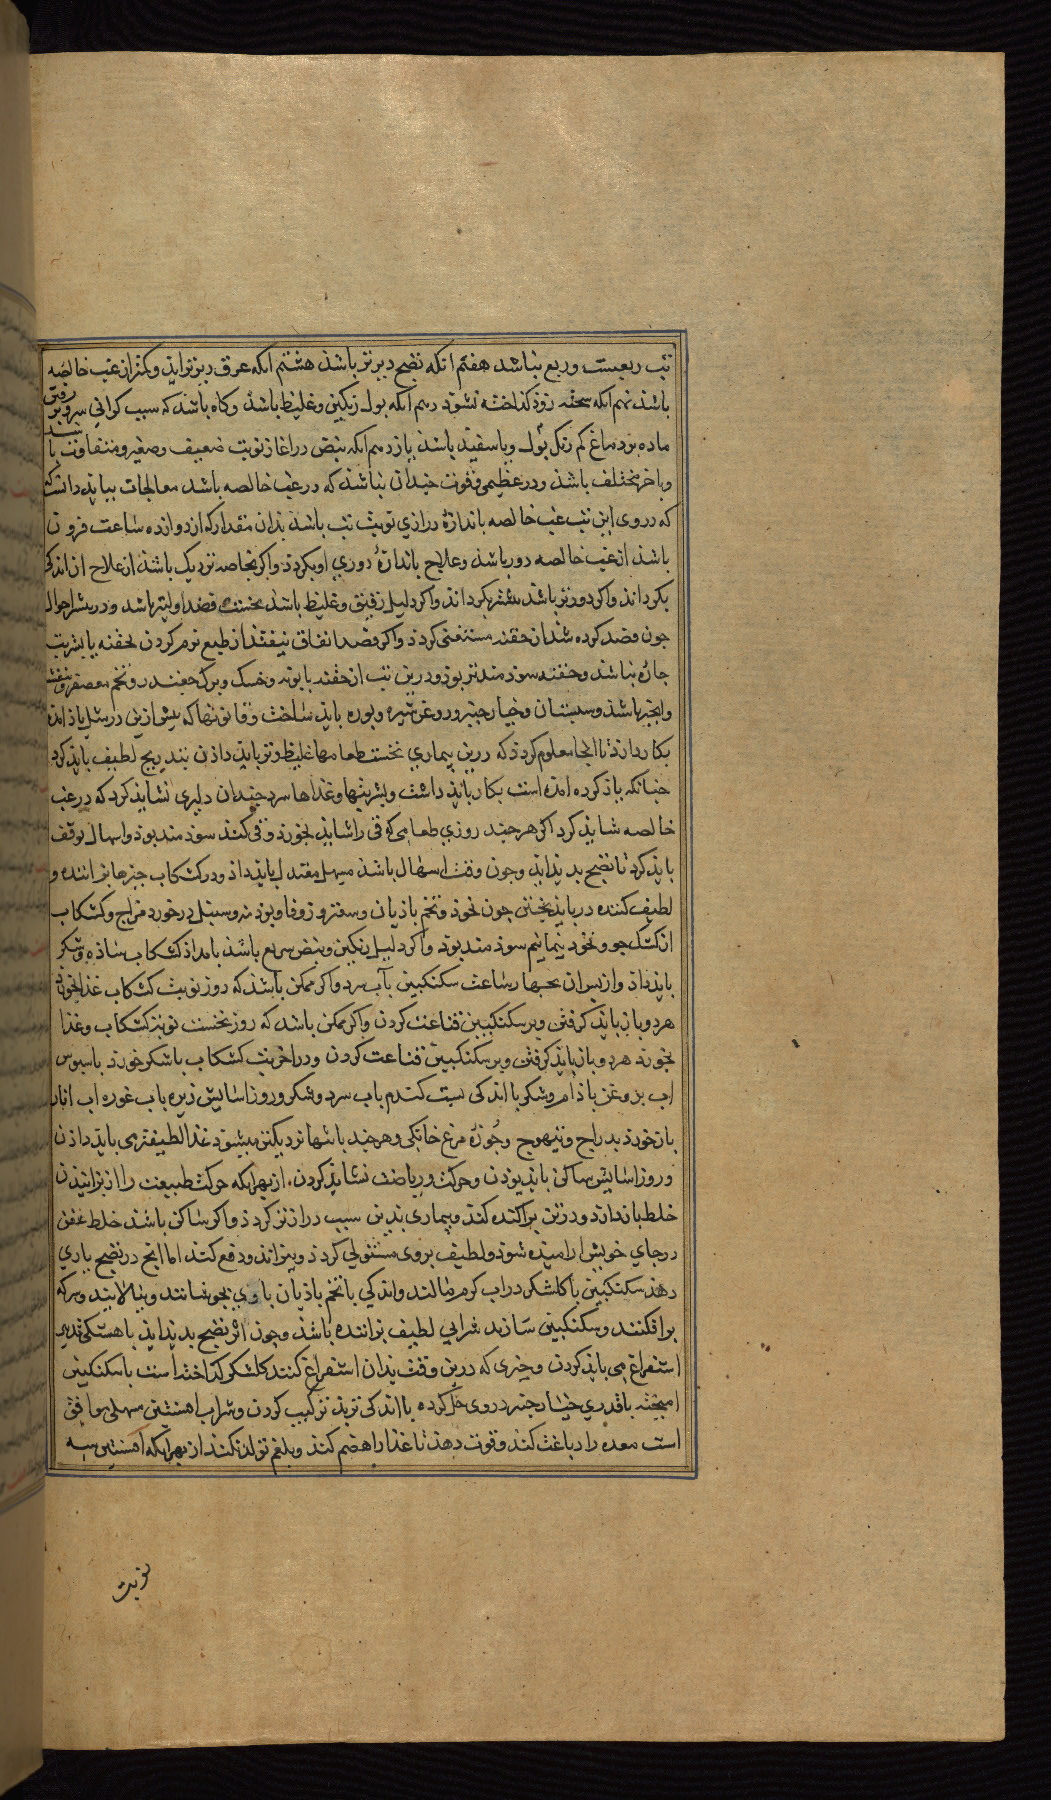 تب ربعیست و ربع نباشد هفتم انکه نضج دیرتر باشذ هشتم انکه عرق دیرتر ایذ و کمتر از غب خالصه
باشذ نهم انکه سحنه زوذ کذاخته نشوذ دهم انکه بول رنکین و غلیظ باشذ و کاه باشذ که سبب کرانی سر و بر
رفتن
ماده بود ماغ کم رنک بول و یا سفید باشذ یازدهم انکه نبض در اغاز نوبت ضعیف و صغیر و متفاوت با
شد
و باخر مختلف باشذ و در عظیمی و قوت جندان نباشذ که در غب خالصه باشد معالجات ببایذ دانست
که دروی این تب غب خالصه باندازهٔ درازی نوبت تب باشذ بذان مقدار که از دوازده ساعت فزون
باشذ از غب خالصه دور باشذ و علاج باندازهٔ دوری او بکردذ و اکر بخاصه نزدیک باشذ از علاج ان اندکی
بکردانذ و اکر دورتر باشذ بیشتر بکردانذ و اکر دلیل رقیق و غلیظ باشذ نخست فصد اولیتر باشد و در بیشتر احوال
جون فصد کرده شد از حقنه مستغنی کردذ و اکر فصد اتفاق نیفتذ از طبع نرم کردن بحقنه یا بشربت
جاره نباشذ و حقنه سوذمندتر بوذ و درین تب از حقنه بابونه و خسک و برک جغندر و تخم معصفر و بنفشه
و انجیر باشذ و سبستان و خیار جنبر و روغن شیره و بوره بایذ ساخت و قانونها که بیش ازین در مثل یاذ امده
بکار دارذ تا انجا معلوم کردذ که درین بیماری نخست طعامها غلیظ‌تر بایذ داذن بتدریج لطیف بایذ کرد
جنانکه یاذ کرده امده است بکار بایذ داشت و بشربتها و غذاها سرد جندان دلیری نشایذ کرد که در غب
خالصه شایذ کرد اکر هر جند روزی طعامی که قی را شایذ بخورذ و قی کنذ سوذمند بوذ و اسهال توقف
بایذ کرد تا نضج بدیذ ایذ وجون وقت اسهال باشذ مسهل معتدل بایذ داذ و در کشکاب جیزها براننده و
لطیف کننده در بایذ بختن جون نخوذ و تخم باذیان و سعتر و زوفا و بوذنه و سنبل در خورد مزاج و کشکاب
از کشک جو و نخوذ نیمانیم سوذمند بوذ و اکر دلیل رنکین و نبض سریع باشذ بامداذ کشکاب ساذه و شکر
بایذ داذ و از بس ان بجهار ساعت سکنکبین بآب سرد و اکر ممکن باشذ که روز نوبت کشکاب غذا نخورد
هر دو باز بایذ کرفتن و بر سکنکبین قناعت کردن و اکر ممکن باشد که روز نخست نوبت کشکاب و غذا
نخورد هر دو باز بایذ کرفتن و بر سکنکبین قناعت کردن و در اخر نوبت کشکاب با شکر خورد با سبوس
اب بروغن باذام و شکر با اندکی بست کندم باب سرد و شکر و روز اسایش زیره باب غوره اب انار
باز خورذ بدراج و تیهوج و جوزه مرغ خانکی و هر جند بانتها نزدیکتر میشوذ غذا لطیفتر می بایذ داذن
و روز اسایش ساکن بایذ بوذن و حرکت و ریاضت نشایذ کردن از بهر انکه حرکت طبیعت را از برانیذن
خلط باز دارذ و در تن براکنده کند و بیماری بذین سبب درازتر کردذ و اکر ساکن باشذ خلط عفن
در جای خویش ارامیذه شوذ و لطیف بر وی مستولی کردذ و ببزانذ و دفع کند اما انج در نضج یاری
دهذ سکنکبین با کلشکر در اب کرم مالند و اندکی با تخم باذیان با وی بجوشانند و ببالایند و سرکه
برافکنند و سکنکبین سازند شرابی لطیف براننده باشذ وجون اثر نضج بدیذ ایذ باهستکی تدبیر
استفراغ می بایذ کردن و جیزی که درین وقت بذان استفراغ کنند کلشکر کداخته است با سکنکبین
امیخته با قدری خیار جنبر در وی حل کرده با اندکی تربد ترکیب کردن و شراب افسنتین مسهلی موافق
است معده را دباغت کند و قوت دهذ تا غذا را هضم کند و بلغم تولد نکند از بهر انکه افسنتین سه
نوبت